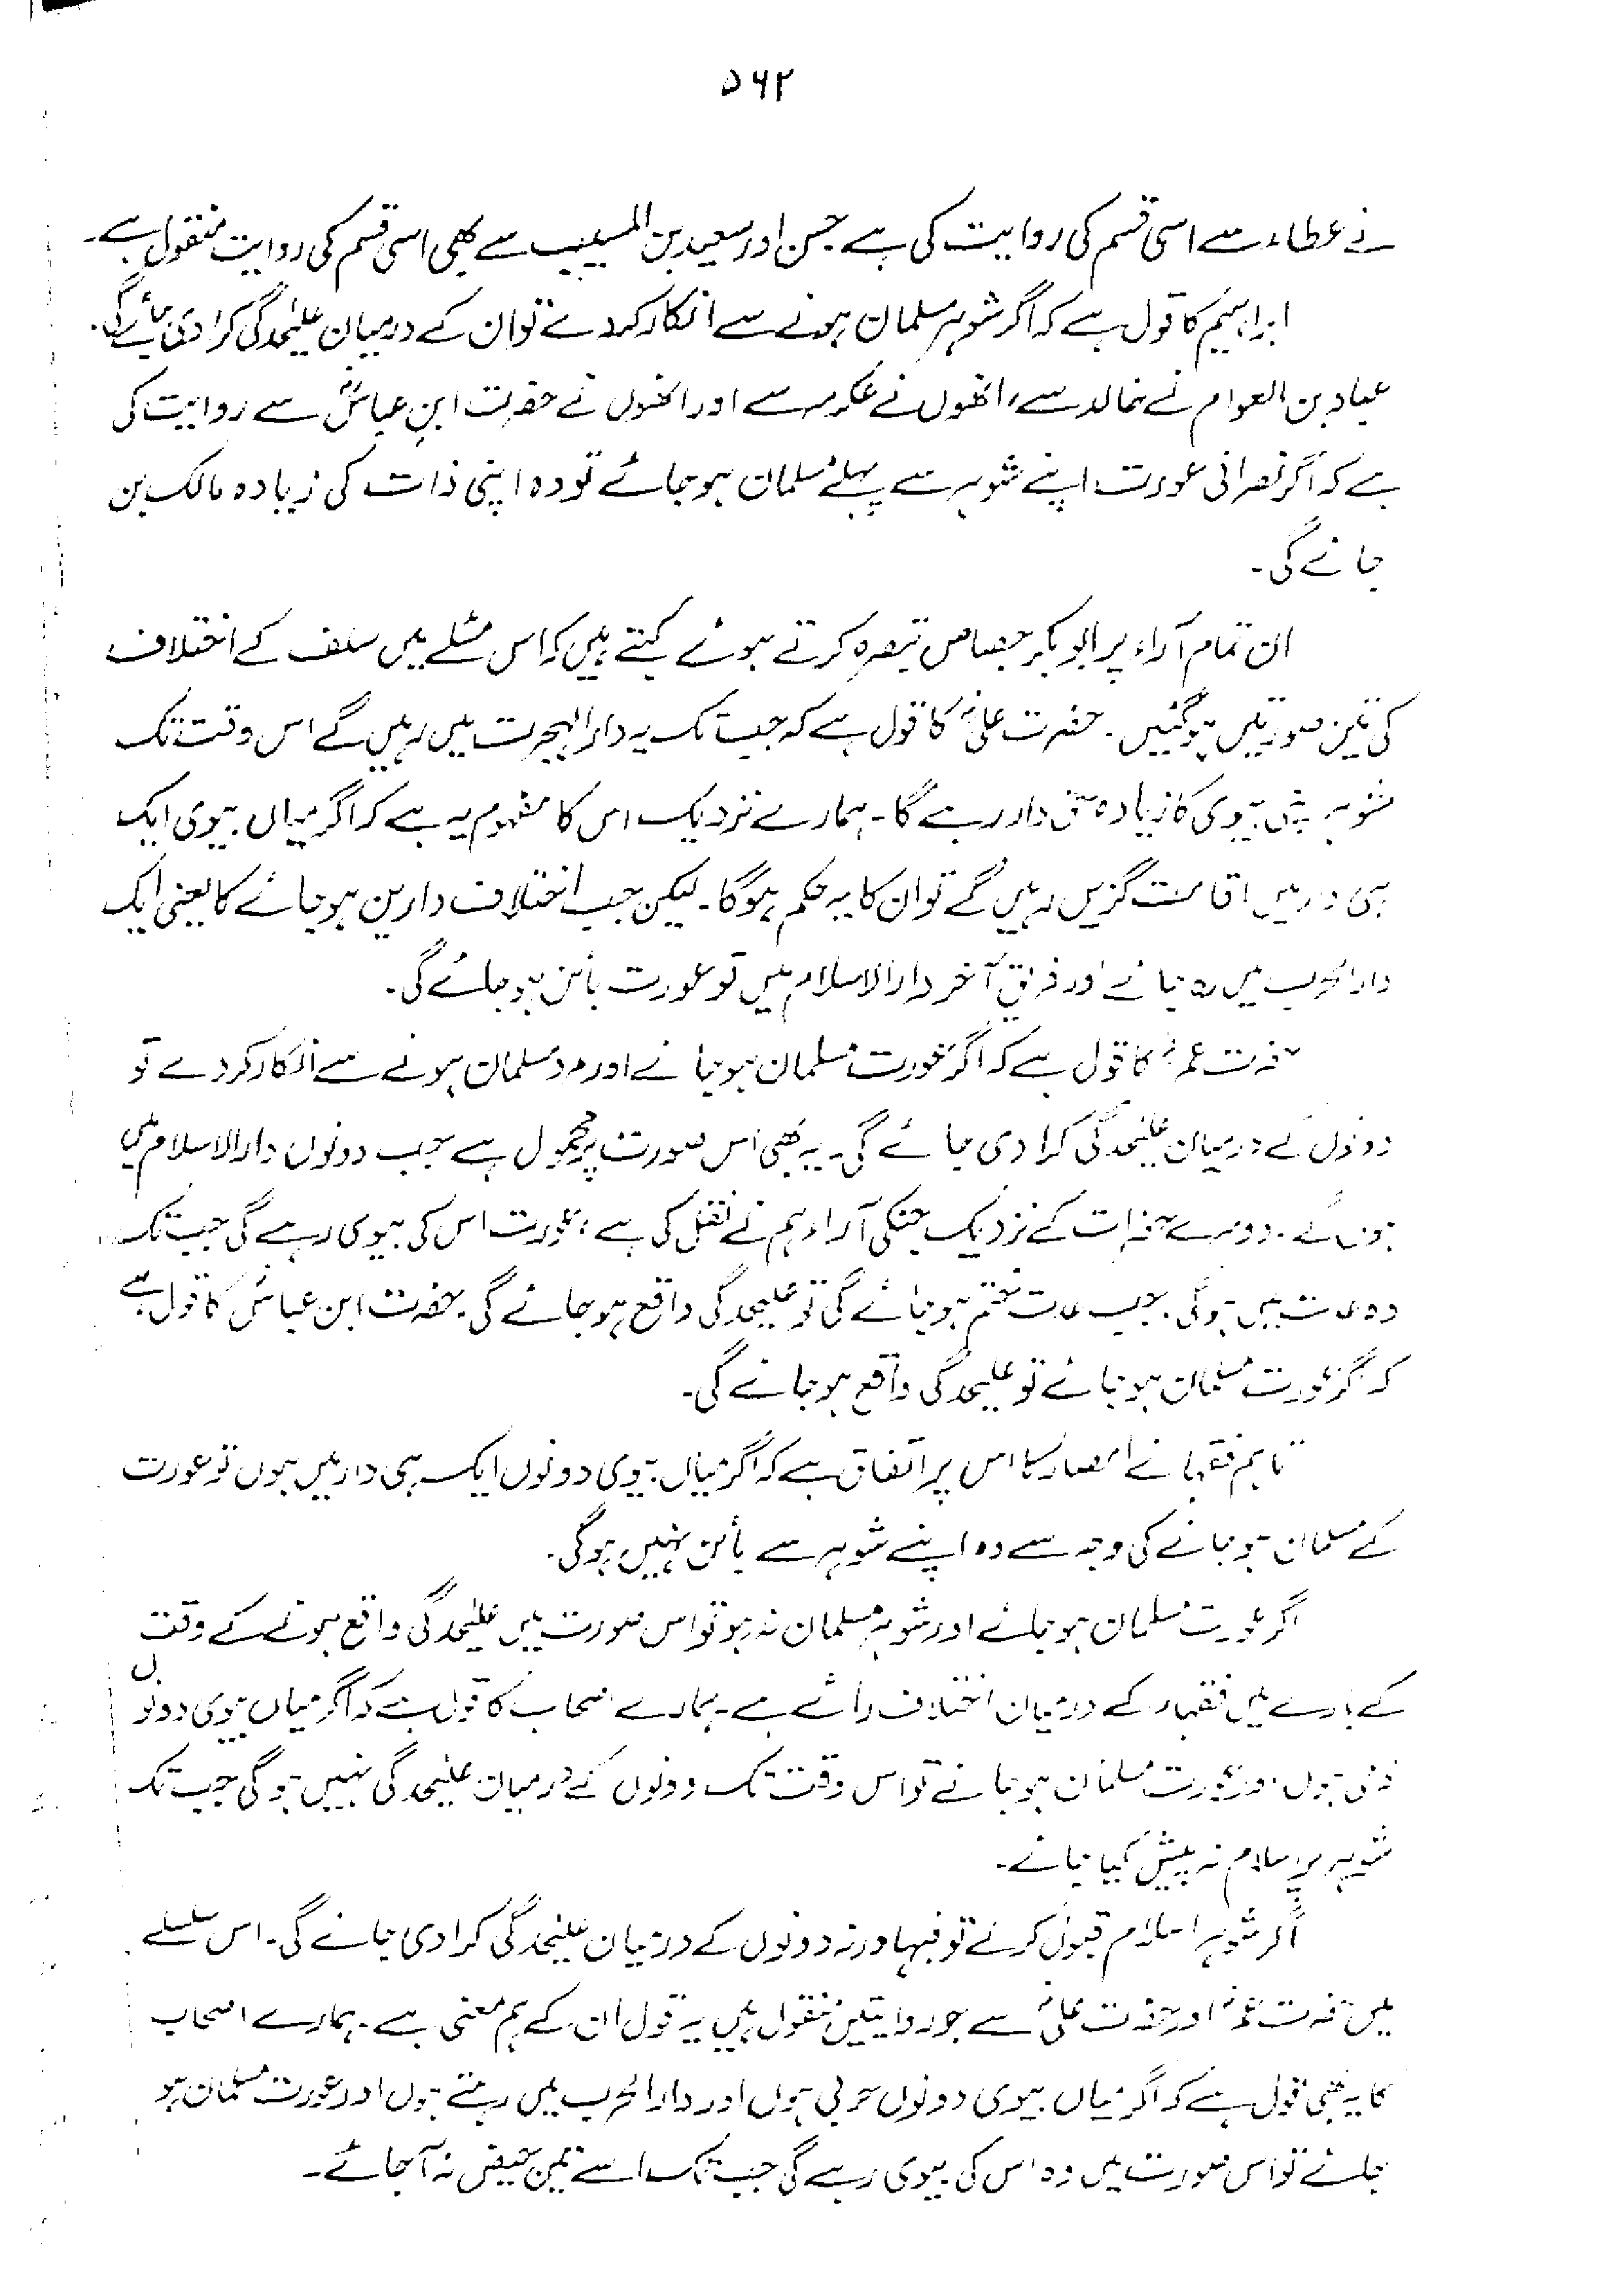 ۵۶۲
نے عطاء سے اسی قسم کی روایت کی ہے حسن اور سعید بن المسیب سے بھی اسی قسم کی روایت منقول ہے۔
ابراہیم کا قول ہے کہ اگر شوہر مسلمان ہونے سے انکار کردے تو ان کے درمیان علیٰحدگی کرا دی جائے گی۔
عباد بن العوام نے خالد سے، انھوں نے عکرمہ سے اور انھوں نے حضرت ابنِ عباسؓ سے روایت کی
ہے کہ اگر نصرانی عورت اپنے شوہر سے پہلے مسلمان ہو جائے تو وہ اپنی ذات کی زیادہ مالک بن
جائے گی۔
ان تمام آراء پر ابوبکر جصاص تبصرہ کرتے ہوئے کہتے ہیں کہ اس مسئلے میں سلف کے اختلاف
کی تین صورتیں ہوگئیں۔ حضرت علیؓ کا قول ہے کہ جب تک یہ دارالہجرت میں رہیں گے اس وقت تک
شوہر اپنی بیوی کا زیادہ حق دار رہے گا۔ ہمارے نزدیک اس کا مفہوم یہ ہے کہ اگر میاں بیوی ایک
ہی دار میں اقامت گزیں رہیں گے تو ان کا یہ حکم ہوگا۔ لیکن جب اختلاف دارین ہو جائے گا یعنی ایک
دارالحرب میں رہ جائے اور فریق آخر دارالاسلام میں تو عورت بائن ہو جائے گی۔
حضرت عمرؓ کا قول ہے کہ اگر عورت مسلمان ہو جائے اور مرد مسلمان ہونے سے انکار کردے تو
دونوں کے درمیان علیٰحدگی کرا دی جائے گی۔ یہ بھی اس صورت پر محمول ہے جب دونوں دارالاسلام میں
ہوں گے۔ دوسرے حضرات کے نزدیک جنکی آراء ہم نے نقل کی ہے، عورت اس کی بیوی رہے گی جب تک
وہ عدت میں ہوگی۔ جب عدت ختم ہو جائے گی تو علیحدگی واقع ہو جائے گی۔ حضرت ابن عباسؓ کا قول ہے
کہ اگر عورت مسلمان ہو جائے تو علیحدگی واقع ہو جائے گی۔
تاہم فقہائے امصار کا اس پر اتفاق ہے کہ اگر میاں بیوی دونوں ایک ہی دار میں ہوں تو عورت
کے مسلمان ہو جانے کی وجہ سے وہ اپنے شوہر سے بائن نہیں ہوگی۔
اگر عورت مسلمان ہو جائے اور شوہر مسلمان نہ ہو تو اس صورت میں علیٰحدگی واقع ہونے کے وقت
کے بارے میں فقہاء کے درمیان اختلاف رائے ہے۔ ہمارے اصحاب کا قول ہے کہ اگر میاں بیوی دونوں
ذمی ہوں اور عورت مسلمان ہو جائے تو اس وقت تک دونوں کے درمیان علیٰحدگی نہیں ہوگی جب تک
شوہر پر اسلام نہ پیش کیا جائے۔
اگر شوہر اسلام قبول کرلے تو فبہا ورنہ دونوں کے درمیان علیٰحدگی کرا دی جائے گی۔ اس سلسلے
میں حضرت عمرؓ اور حضرت علیؓ سے جو روایتیں منقول ہیں یہ قول ان کے ہم معنی ہے۔ ہمارے اصحاب
کا یہ بھی قول ہے کہ اگر میاں بیوی دونوں حربی ہوں اور دارالحرب میں رہتے ہوں اور عورت مسلمان ہو
جائے تو اس صورت میں وہ اس کی بیوی رہے گی جب تک اسے تین حیض نہ آ جائے۔